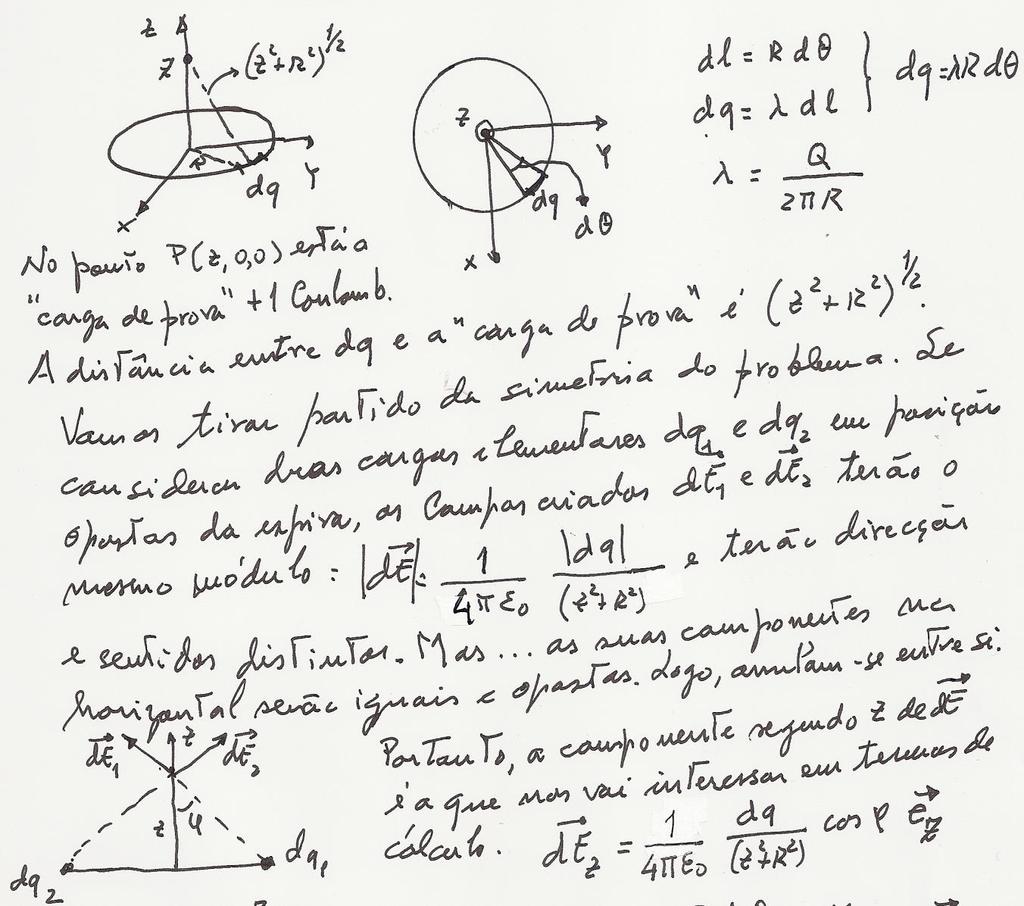 z
z
(z²+R²)^1/2
R
dq
Y
X
z
Y
dq
dθ
X
dl = R dθ
dq = λ dl
} dq = λR dθ
λ = Q / 2πR
No ponto P(z,0,0) está a
"carga de prova" +1 Coulomb.
A distância entre dq e a "carga de prova" é (z²+R²)^1/2.
Vamos tirar partido da simetria do problema. Se
considerar duas cargas elementares dq₁ e dq₂ em posição
opostas da espira, os Campos criados dE⃗₁ e dE⃗₂ terão o
mesmo módulo: |dE⃗| = 1/4πε₀ |dq|/(z²+R²) e terão direcção
e sentidos distintos. Mas... as suas componentes na
horizontal serão iguais e opostas. Logo, anulam-se entre si.
dE⃗₁
z
dE⃗₂
z
φ
dq₂
dq₁
Portanto, a componente segundo z de dE⃗
é a que nos vai interessar em termos de
cálculo. dE⃗_z = 1/4πε₀ dq/(z²+R²) cos φ e⃗_z